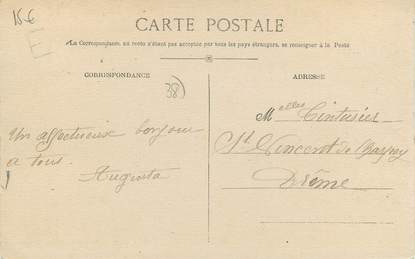 15 €
E
CARTE POSTALE
La Correspondance au recto n'étant pas acceptée par tous les pays étrangers, se renseigner à la Poste
CORRESPONDANCE
ADRESSE
38)
Melles
Un affectueux bonjour
à tous.
Augusta
St Vincent de
Drôme